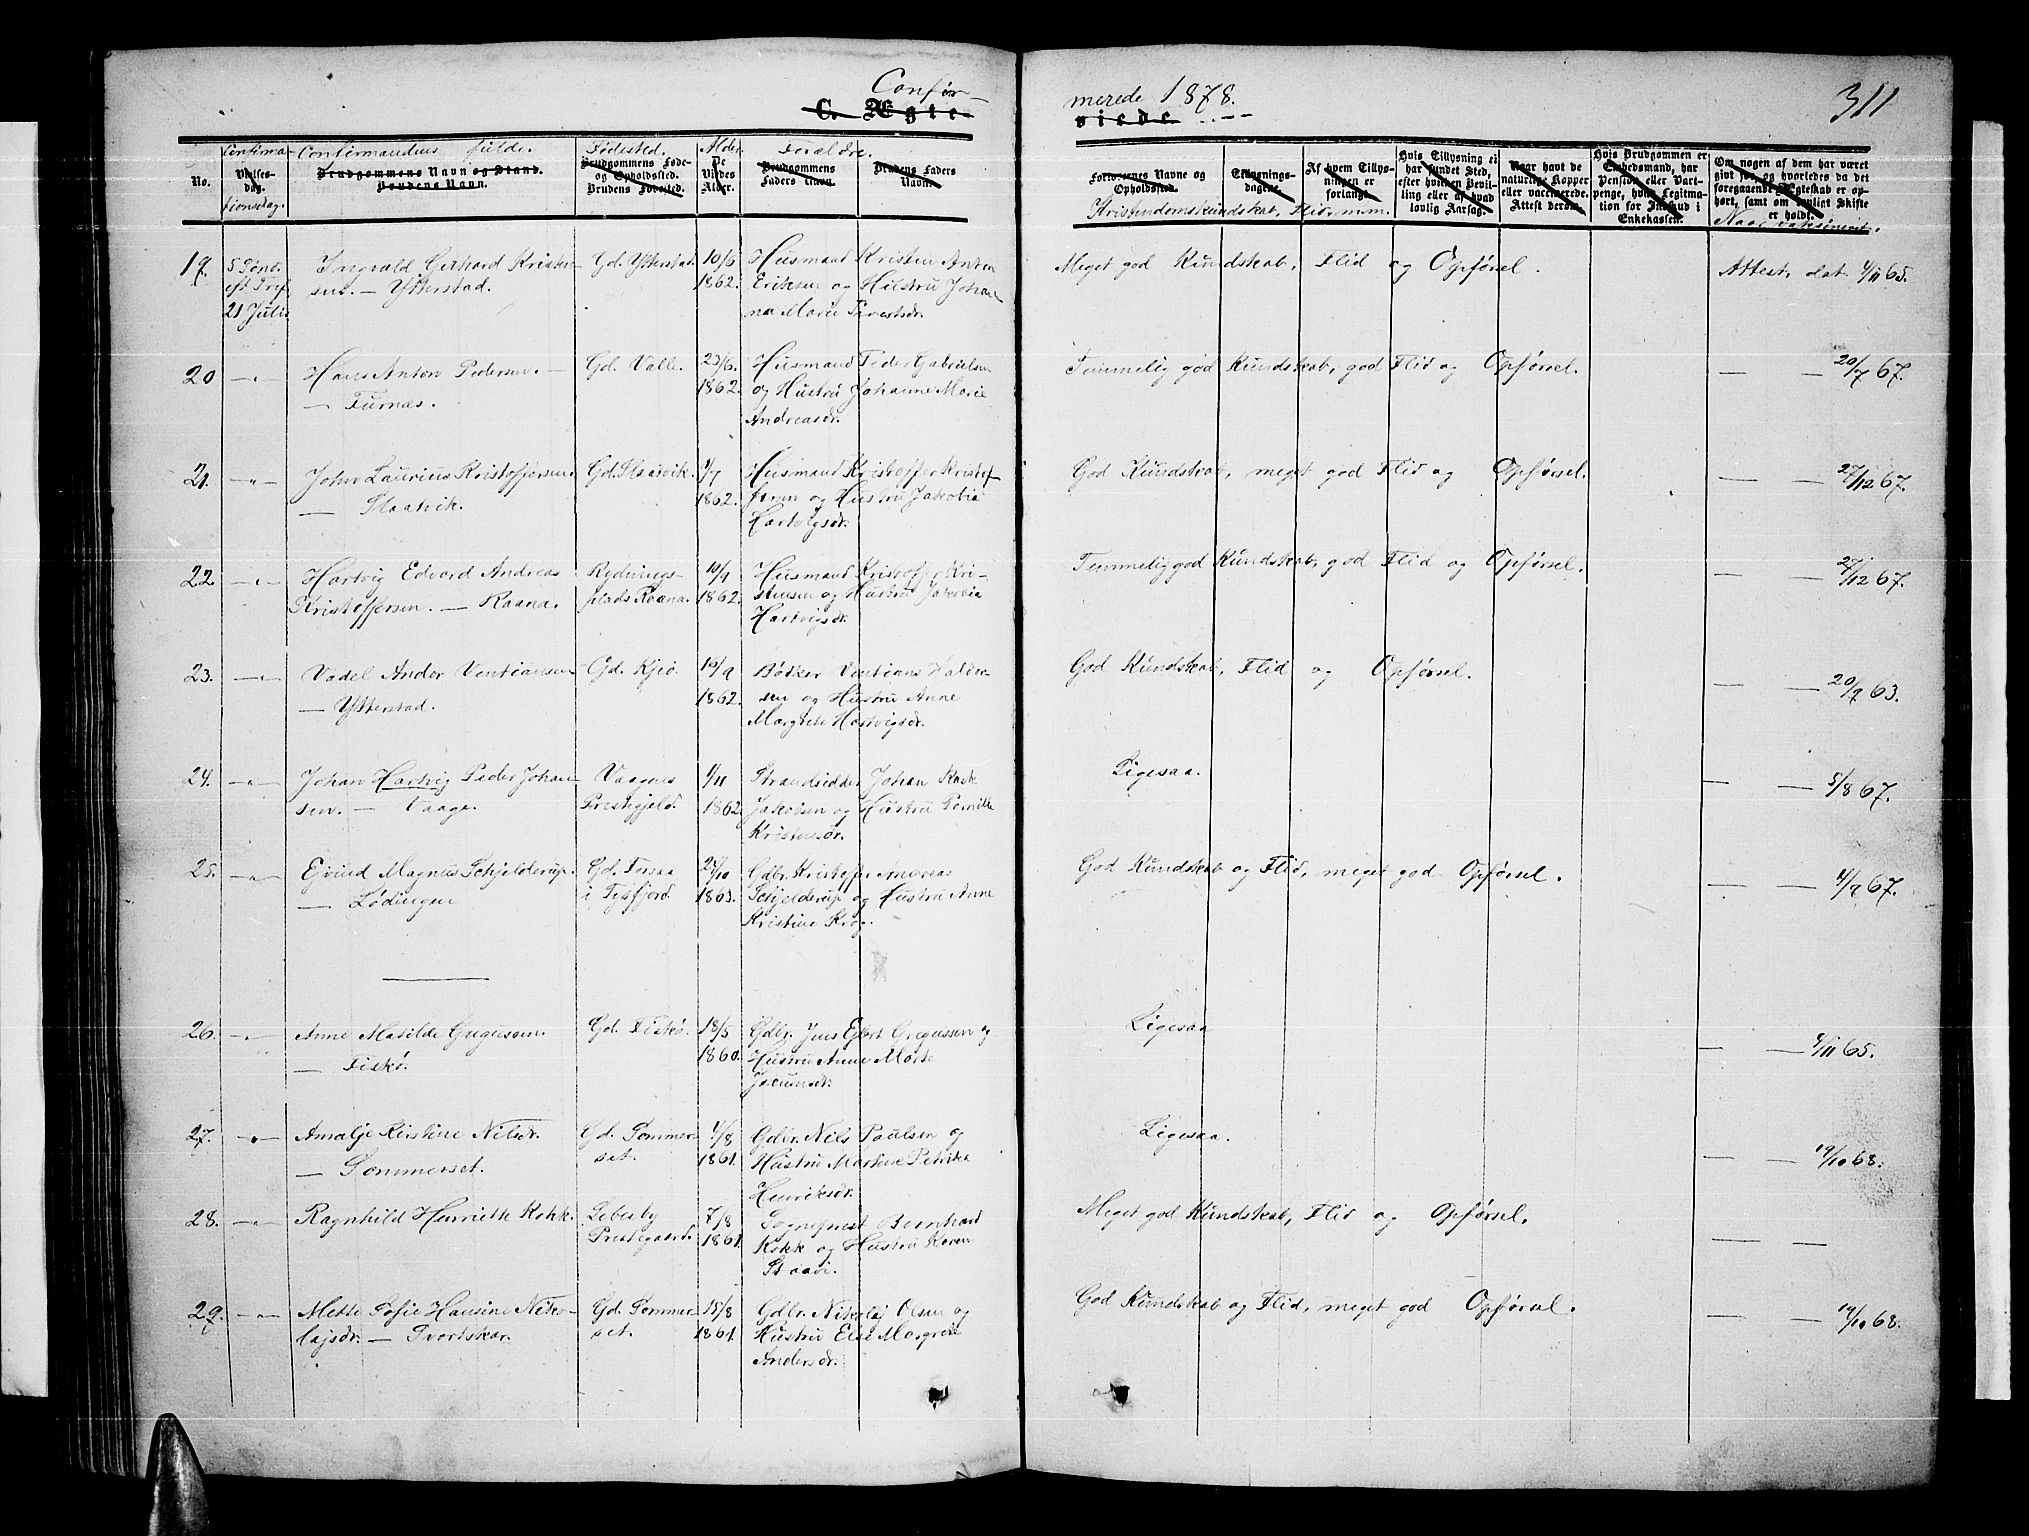 Confir-
C. Ægte-
merede 1878.
viede.
311
No.
Confirma-
Vielses-
dag.
tionsdag.
Confirmandens fulde.
Brudgommens Navn og Stand.
Brudens Navn.
Fødested.
Brudgommens Føde-
og Opholdssted.
Brudens Fødested.
Alder
De
Viedes
Alder.
Forældre.
Brudgommens
Faders Navn.
Brudens Faders
Navn.
Forlovernes Navne og
Opholdssted.
Kristendomskundskab, Flid, m.m.
Tillysnings-
dagene.
Af hvem Tillys-
ningen er
forlangt.
Hvis Tillysning ei
har fundet Sted,
efter hvilken Bevil-
ling eller af hvad
lovlig Aarsag.
Naar havt de
naturlige Kopper
eller vaccinerede.
Attest derom.
Hvis Brudgommen er
Enkedsmand, har
Pension eller Vart-
penge, hvis Legitma-
tion for Indskud i
Enkekassen.
Om nogen af dem har været
givt før, og hvorledes da det
foregaaende Ægteskab er op-
hørt, samt om lovligt Skifte
er holdt.
Naar vaksineret.
19.
5 Sønd.
eft Tref.
21 Juli.
Ingvald Gerhard Kristen
sen. — Ytterstad.
Gd. Ytterstad.
10/6
1862.
Husmand Kristen Anton
Eriksen og Hustru Johan
na Marie Sivertsdr.
Meget god Kundskab, Flid og Opførsel.
Attest, dat 1/11 65.
20 —〃—
Hans Anton Pedersen. —
— Furnæs.
Gd. Valle.
23/6.
1862.
Husmand Peder Gabrielsen
og Hustru Johanne Marie
Andreasdr.
Temmelig god Kundskab, god Flid og Opførsel.
— — 20/7 67.
21. —〃—
John Laurius Kristoffersen.
— Staavik.
Gd. Staavik.
1/7
1862.
Husmand Kristoffer Kristof
fersen og Hustru Jakobia
Hartvigsdr.
God Kundskab, meget god Flid og Opførsel.
— — 27/12 67.
22. —〃—
Hartvig Edvard Andreas
Kristoffersen. — Raana.
Rydnings-
plads Raana.
10/9
1862.
Husmand Kristoffer Kri-
stensen og Hustru Jakobia
Hartvigsdr.
Temmelig god Kundskab, god Flid og Opførsel.
— — 27/12 67.
23. —〃—
Vadel Andor Ventiansen
— Ytterstad.
Gd. Kjiø.
16/9
1862.
Bødker Ventians Halder-
sen og Hustru Anne
Margrete Hartvigsdr.
God Kundskab, Flid og Opførsel.
— — 20/9 63.
24. —〃—
Johan Hartvig Peder Johan
sen. — Vaage.
Vaagens
Prestegjeld.
1/11
1862.
Strandsidder Johan Rask
Jakobsen og Hustru Pernille
Kristensdr.
Ligesaa.
— — 5/8 67.
25. —〃—
Ejvind Magnus Schjelderup.
— Lødingen
Gd. Forsaa
i Tysfjord.
24/10
1863.
Gdbr. Kristoffer Andreas
Schjelderup og Hustru Anne
Kristine Krog.
God Kundskab og Flid, meget god Opførsel.
— — 4/9 67.
26. —〃—
Anne Matilde Gregussen.
— Fiskø.
Gd. Fiskø.
18/5
1860.
Gdbr. Jens Ejlert Gregussen og
Hustru Anne Marte
Ligesaa
— — 1/11 65.
27. —〃—
Amalje Kirstine Nilsdr.
— Sommerset.
Gd. Sommer-
set.
4/8
1861.
Gdbr. Nils Paulsen og
Hustru Martine Petrikke
Henriksdr.
Ligesaa.
— — 19/10 68.
28. —〃—
Ragnhild Henriette Kokk.
Lebesby
Prestegaard.
7/8
1861.
Sogneprest Bernhard
Kokk og Hustru Karen
Meget god Kundskab, Flid og Opførsel.
— —
29. —〃—
Mette Sofie Hansine Niko-
lajsdr. — Svartskar.
Gd. Sommer-
set.
15/8
1861.
Gdbr. Nikolaj Olsen og
Hustru Else Margrete
Andersdr.
God Kundskab og Flid, meget god Opførsel.
— — 19/10 68.